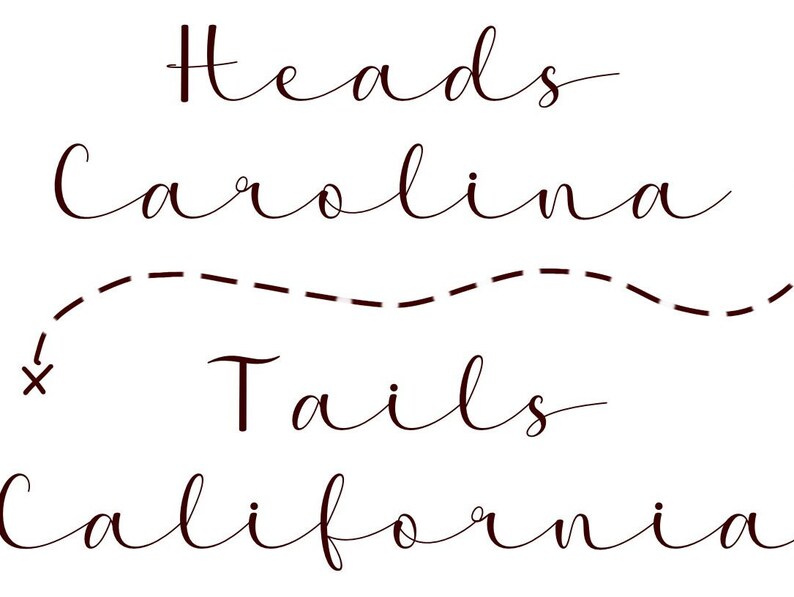 Heads
Carolina
Tails
California